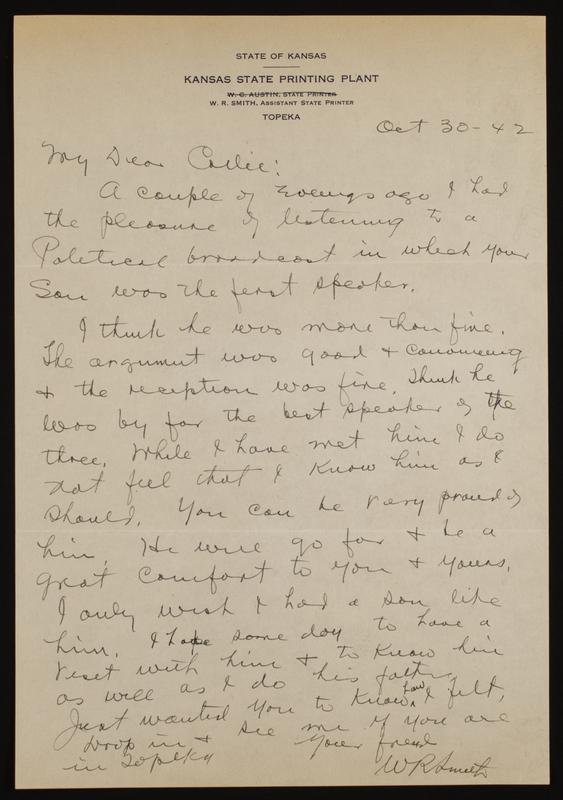 STATE OF KANSAS
KANSAS STATE PRINTING PLANT
W. C. AUSTIN, STATE PRINTER
W. R. SMITH, ASSISTANT STATE PRINTER
TOPEKA
Oct 30-42
My Dear
A couple of Evenings ago I had
the pleasure of listening to a
Political broadcast in which your
Son was the first speaker.
I think he was more than fine.
The argument was good & convincing
& the reception was fine. Think he
was by far the best speaker of the
three. While I have met him I do
not feel that I know him as I
should. You can be very proud of
him. He will go far & be a
great comfort to you & yours.
I only wish I had a son like
him. I hope some day to have a
visit with him & to know him
as well as I do his father.
Just wanted you to know how I felt.
Drop in & see me if you are
in Topeka
Your friend
W R Smith